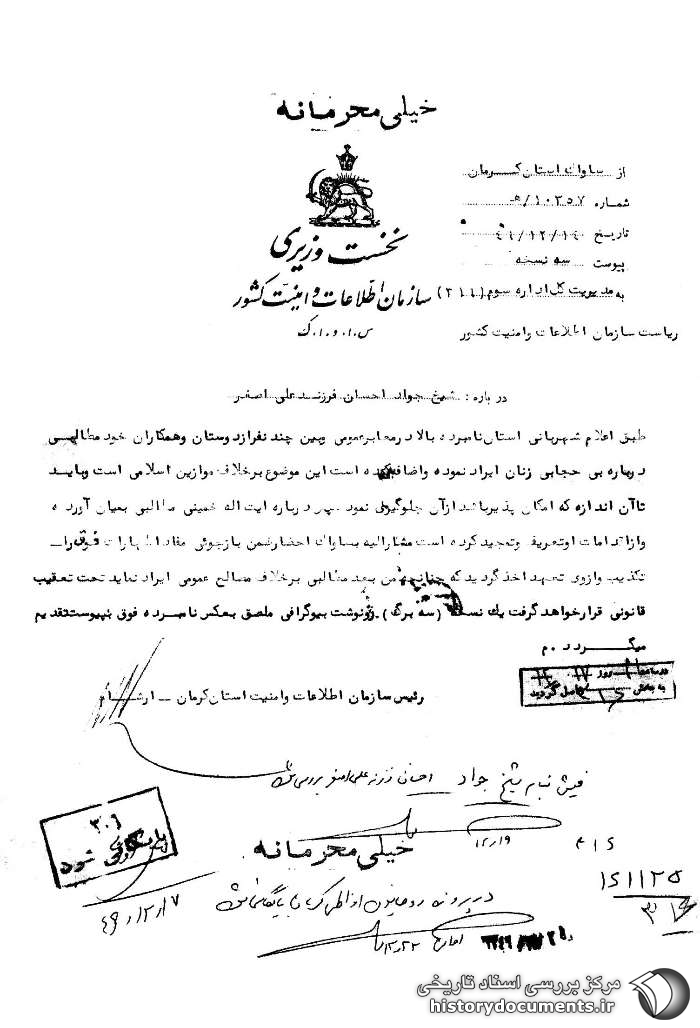 خیلی محرمانه
از ساواك استان کرمان
شماره ۱۰۳۵۷/ه
تاریخ
پیوست سه نسخه
به مدیریت کل اداره سوم (۳۱۱)
نخست وزیری
سازمان اطلاعات و امنیت کشور
س.ا.و.ا.ك
ریاست سازمان اطلاعات وامنیت کشور
در باره : شیخ جواد احسان فرزند علی اصغر
طبق اعلام شهربانی استان نامبرده بالا در معابر عمومی وبین چند نفر از دوستان وهمکاران خود مطالبـی
درباره بی حجابی زنان ایراد نموده واضافه کرده است این موضوع بر خلاف موازین اسلامی است وبایـد
تا آن اندازه که امکان پذیر باشد از آن جلوگیری نمود سپس درباره ایت اله خمینی مطالبی بمیان آورده
واز اقدامات او تعریف وتمجید کرده است مشارالیه بساواك احضار ضمن بازجوئی مفاد اظهارات فوق را
تکذیب واز وی تعهد اخذ گردید که چنانچه من بعد مطالبی بر خلاف مصالح عمومی ایراد نماید تحت تعقیب
قانونی قرار خواهد گرفت یك نسخه (سه برگ) رونوشت بیوگرافی ملصق بعکس نامبرده فوق بپیوست تقدیم
میگـردد. م
رئیس سازمان اطلاعات وامنیت استان کرمان ـ ارشـام
به بخش حاصل گردید
فیش بنام شیخ جواد احسان فرزند علی اصغر بررسی شود
۱۲/۱۹
۳۰۱
بایگانی شود
۴۹/۱۲/۱۷
خیلی محرمانه
۱۵۱۱۲۵
۳۱۶
در پرونده روحانیون بایگانی شود
۱۲/۲۳
مرکز بررسی اسناد تاریخی
historydocuments.ir